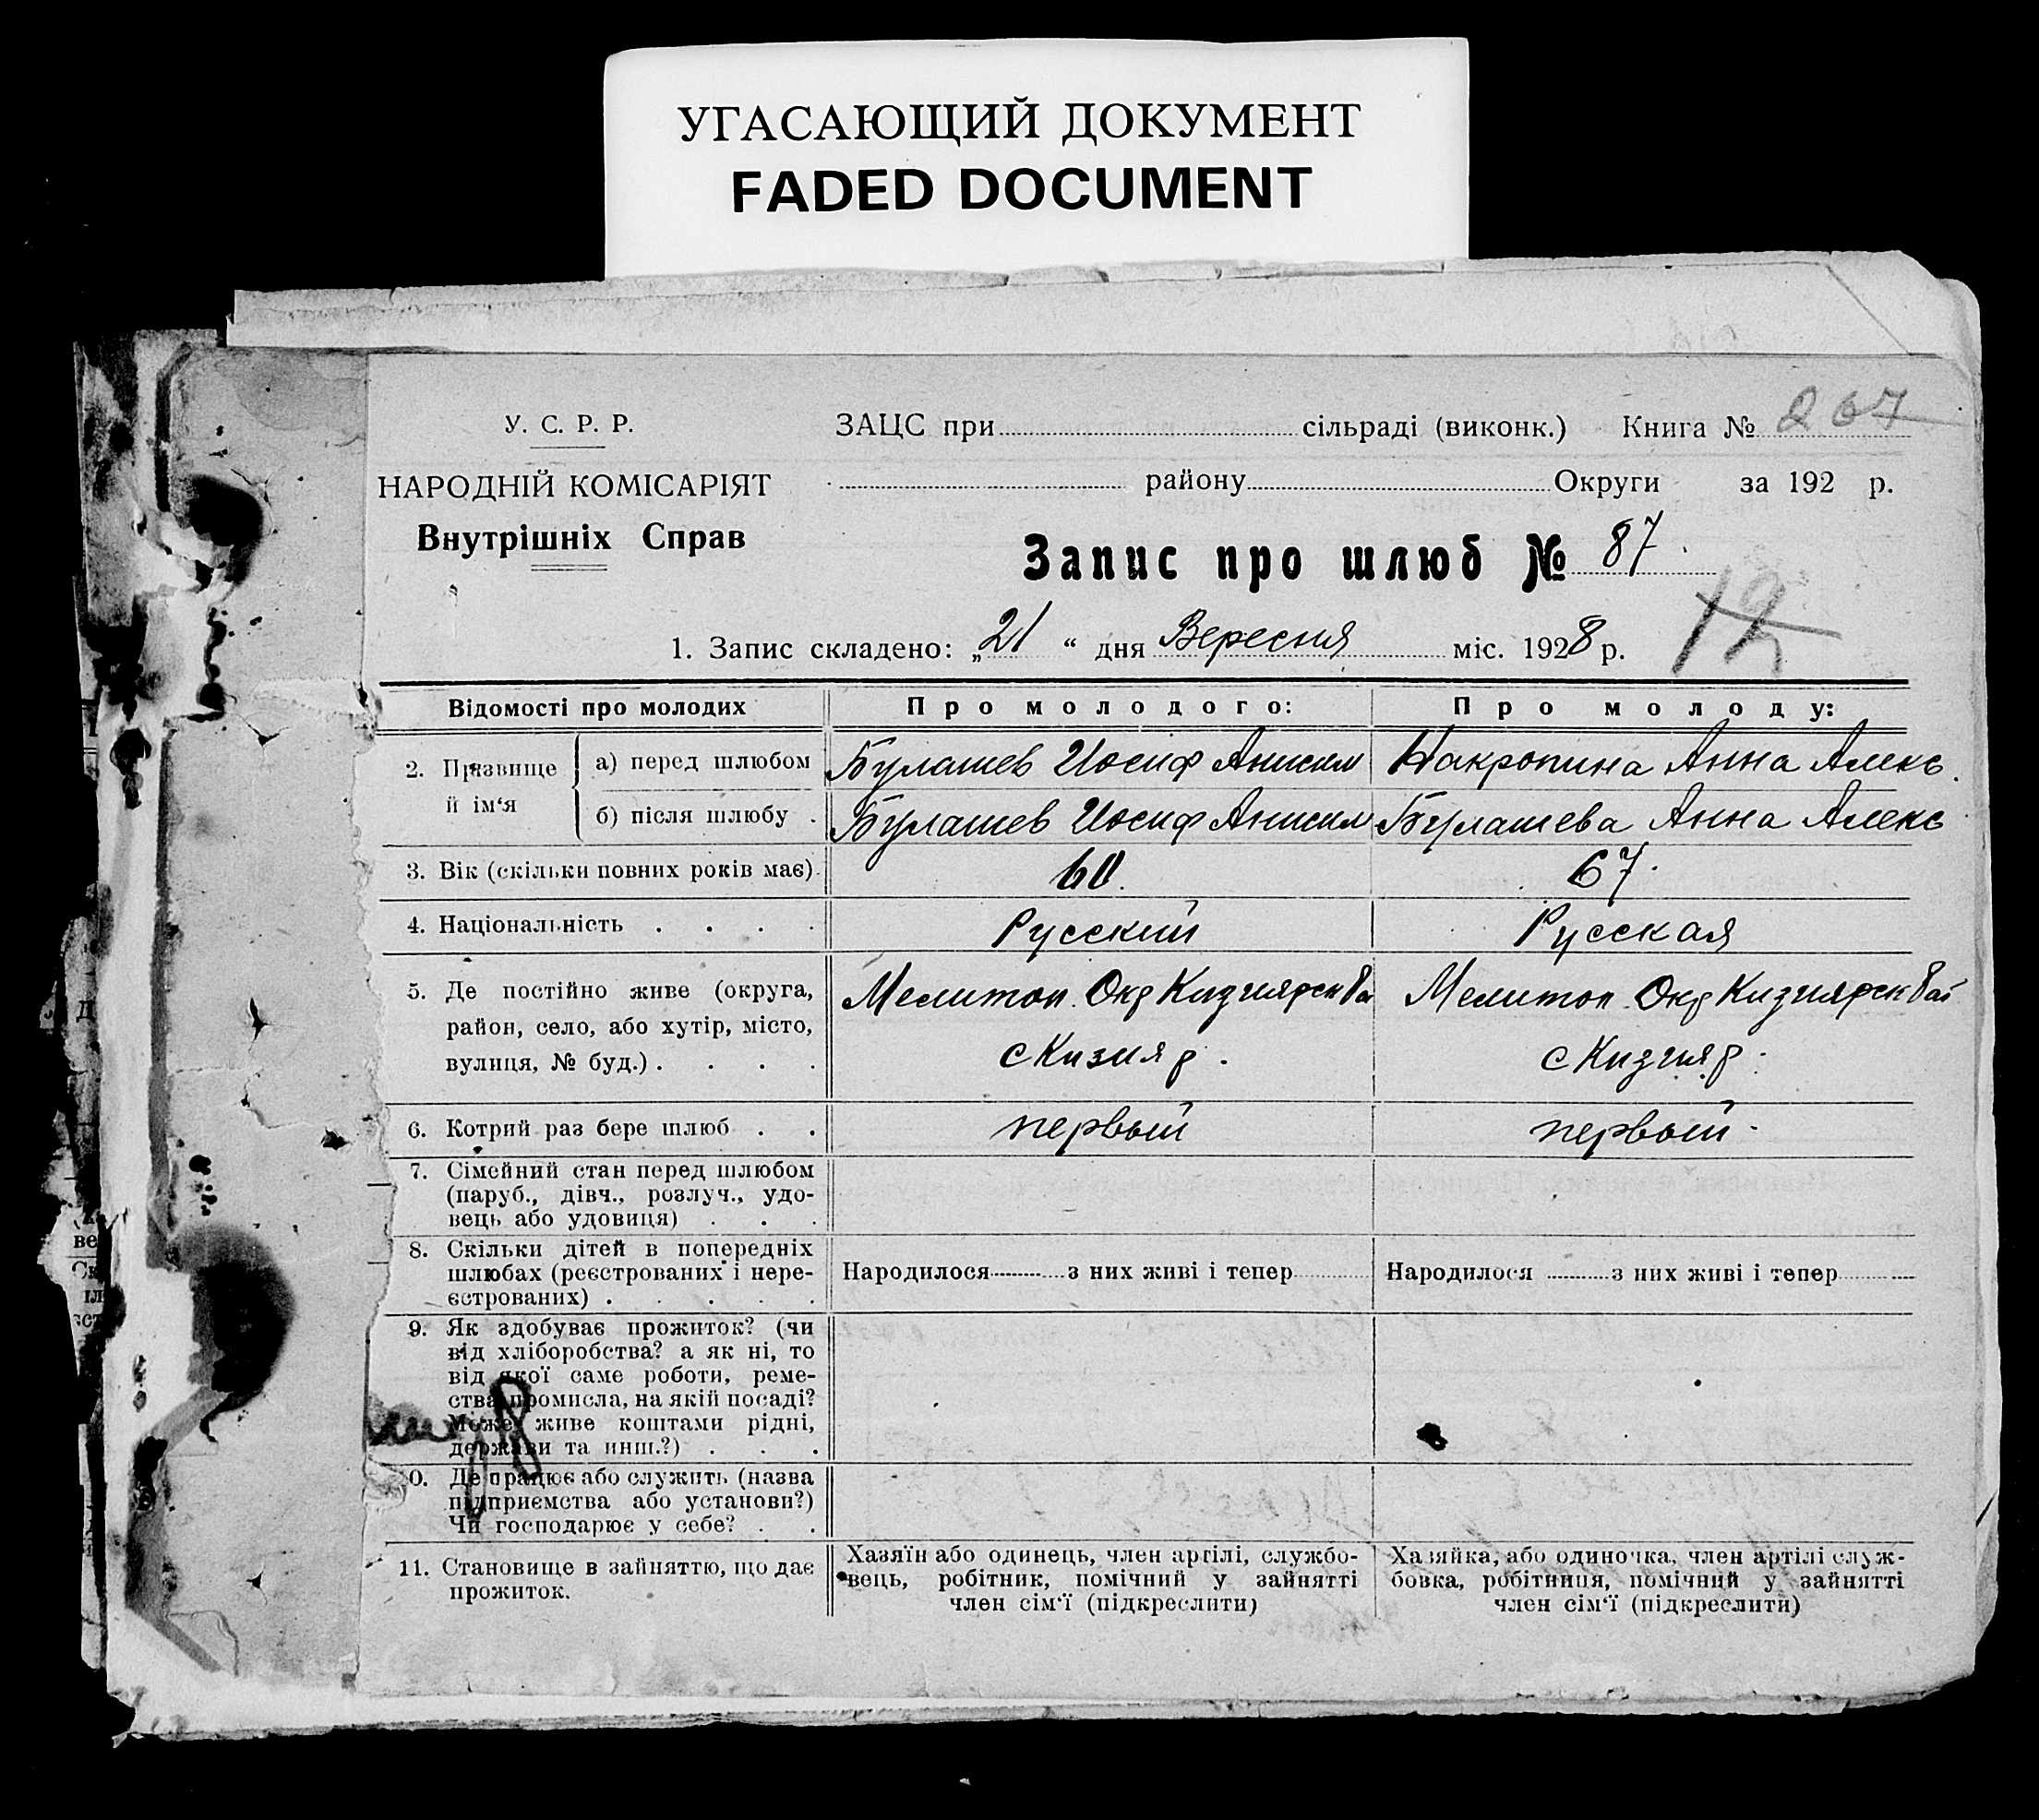 УГАСАЮЩИЙ ДОКУМЕНТ
FADED DOCUMENT
У. С. Р. Р.
ЗАЦС при сільраді (виконк.) Книга № 267
НАРОДНІЙ КОМІСАРІЯТ
району Округи за 192 р.
Внутрішніх Справ
Запис про шлюб № 87.
12
1. Запис складено: „21“ дня Вересня міс. 1928 р.
Відомості про молодих
Про молодого:
Про молоду:
2. Прізвище й ім‘я
а) перед шлюбом
Булашев Иосиф Анисим
Накропина Анна Алекс.
б) після шлюбу .
Булашев Иосиф Анисим
Булашева Анна Алекс
3. Вік (скільки повних років має).
60.
67.
4. Національність . . . .
Русский
Русская
5. Де постійно живе (округа,
район, село, або хутір, місто,
вулиця, № буд.) . . . .
Мелитоп. Окр Кизиярск
с Кизияр.
Мелитоп. Окр Кизиярск
с Кизияр.
6. Котрий раз бере шлюб . .
первый
первый.
7. Сімейний стан перед шлюбом
(паруб., дівч., розлуч., удо-
вець або удовиця) . . .
8. Скільки дітей в попередніх
шлюбах (реєстрованих і нере-
єстрованих) . . . . .
Народилося з них живі і тепер
Народилося з них живі і тепер
9. Як здобуває прожиток? (чи
від хліборобства? а як ні, то
від якої саме роботи, реме-
ства, промисла, на якій посаді?
Може живе коштами рідні,
держави та инш.?) . . .
0. Де працює або служить (назва
підприємства або установи?)
Чи господарює у себе? . .
11. Становище в зайняттю, що дає
прожиток.
Хазяїн або одинець, член артілі, службо-
вець, робітник, помічний у зайнятті
член сім‘ї (підкреслити)
Хазяйка, або одиночка, член артілі служ-
бовка, робітниця, помічний у зайнятті
член сім‘ї (підкреслити)